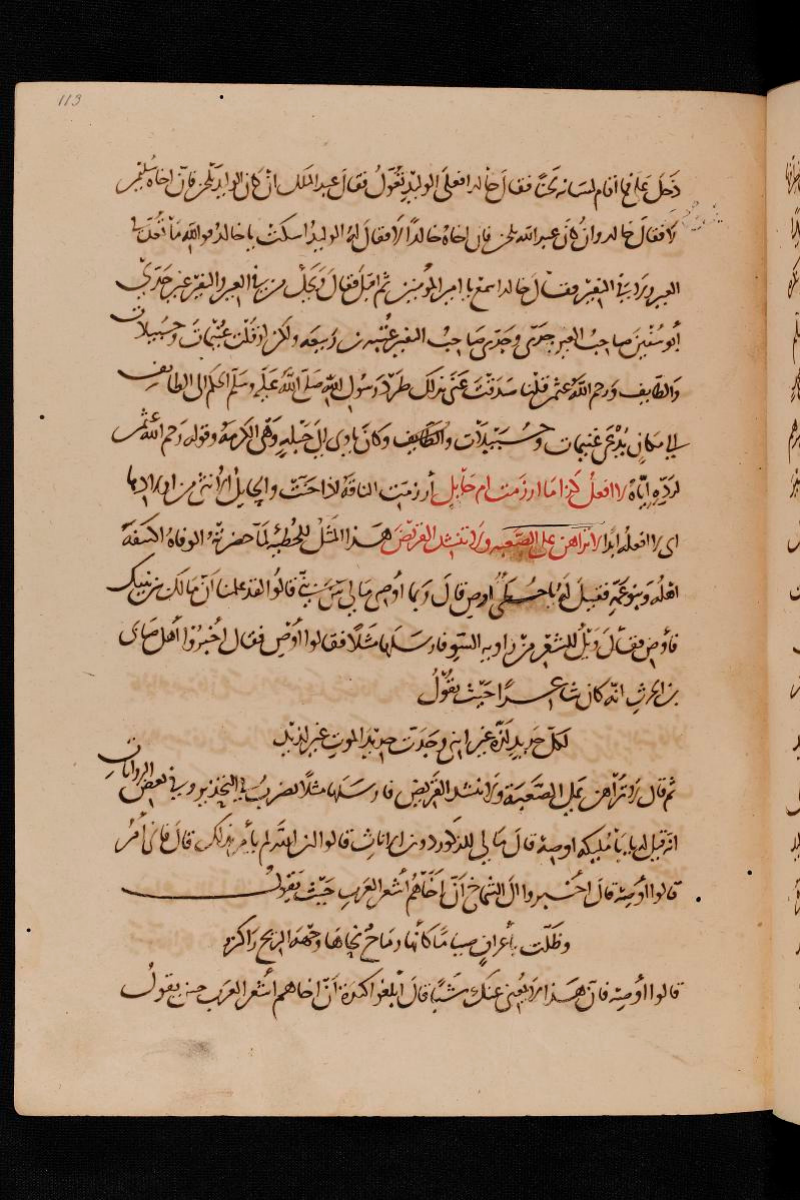 113
دخل علي فما اقام لسانه لحنًا فقال خالد افعلى الوليد تعوّل فقال عبد الملك ان كان الوليد يلحن فان اخاه سليمن
لا فقال خالد وان كان عبد الله يلحن فان اخاه خالدًا لا فقال له الوليد اسكت يا خالد فوالله ما تعد في
العير ولا في النفير فقال خالد اسمع يا امير المؤمنين ثم اقبل فقال ويحك من في العير والنفير غير جدّي
أبو سفين صاحب العير جدّى وجدّى صاحب النفير عتبه بن ربيعه ولكن لو قلت غنيمات وحبيلات
والطايف ورحم الله عثمن قلنا صدقت عنى بذلك طرد رسول الله صلى الله عليه وسلم الحكم الى الطايف
الى مكان يُدْعَى غنيمات وحبيلات والطايف وكان ياوى الى حبله وهى الكرمة وقوله رحم الله عثمن
لردّه اياه لا افعل كذا ما ارزمت ام حايل أرزمت الناقة اذا حنّت والحايل الانثى من اولادها
اى لا افعله ابدا لا تراهن على الصعبه ولا تنشد القريض هذا المثل للحطيئه لما حضرته الوفاة اكتنفه
اهله وبنو عمّه فقيل له يا حطئ اوص قال وبما أوصى مالي بين بنيّ قالوا قد علمنا أن مالك بين بنيك
فأوص فقال ويل للشعر من راوية السو فارسلها مثلًا فقالوا أوص فقال اخبروا أهل ضابى
بن الحرث انّه كان شاعرًا حيث يقول
لكل جديد لذة غير انني وجدت جديد الموت غير لذيذ
ثم قال لا تراهن على الصعبة ولا تنشد القريض فارسلها مثلا يضرب في التحذير وفي بعض الروايات
انه قيل له يا با مليكه اوصه قال مالي للذكور دون الاناث قالوا ان الله لم يأمر بذلك قال فانى آمر
قالوا أوصه قال أخبروا ال الشماخ أن اخاهم أشعر العرب حيث يقول
وظلت بأعراف صياما كأنها رماح نحاها وجهة الريح راكز
قالوا أوصه فان هذا لا يغنى عنك شيئا قال أبلغوا كندة أن اخاهم أشعر العرب حين يقول